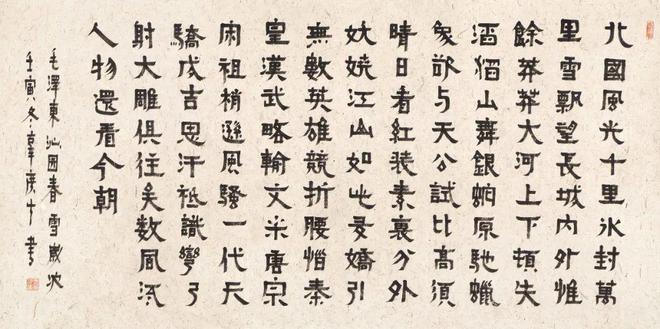 北國風光千里冰封萬
里雪飄望長城内外惟
餘莽莽大河上下頓失
滔滔山舞銀蛇原馳蠟
象欲与天公試比高須
晴日看紅装素裹分外
妖嬈江山如此多嬌引
無數英雄競折腰惜秦
皇漢武略輸文采唐宗
宋祖稍遜風騷一代天
驕成吉思汗祗識彎弓
射大雕俱往矣数風流
人物還看今朝
毛澤東沁园春雪歲次
壬寅冬書